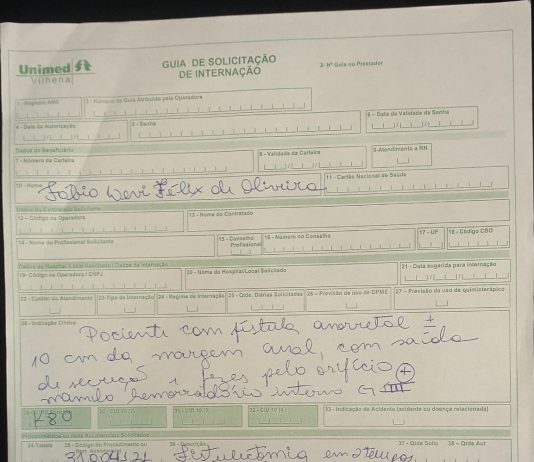 Unimed
Vilhena
GUIA DE SOLICITAÇÃO
DE INTERNAÇÃO
2- Nº Guia no Prestador
1 - Registro ANS
3 - Número da Guia Atribuído pela Operadora
4 - Data da Autorização
5 - Senha
6 - Data de Validade da Senha
Dados do Beneficiário
7 - Número da Carteira
8 - Validade da Carteira
9-Atendimento a RN
10 - Nome
Fábio Levi Félix de Oliveira
11 - Cartão Nacional de Saúde
Dados do Contratado Solicitante
12 - Código na Operadora
13 - Nome do Contratado
14 - Nome do Profissional Solicitante
15 - Conselho Profissional
16 - Número no Conselho
17 - UF
18 - Código CBO
Dados do Hospital /Local Solicitado / Dados da Internação
19- Código na Operadora / CNPJ
20 - Nome do Hospital/Local Solicitado
21 - Data sugerida para internação
22 - Caráter do Atendimento
23-Tipo de Internação
24 - Regime de Internação
25 - Qtde. Diárias Solicitadas
26 - Previsão de uso de OPME
27 - Previsão de uso de quimioterápico
28 - Indicação Clínica
Paciente com fístula anorretal ±
10 cm da margem anal, com saída
de secreção e fezes pelo orifício +
mamilo hemorroidário interno G III
K80
30 - CID 10 (2)
31 - CID 10 (3)
32 - CID 10 (4)
33 - Indicação de Acidente (acidente ou doença relacionada)
Procedimentos ou Itens Assistenciais Solicitados
34-Tabela
35 - Código do Procedimento ou
36 - Descrição
37 - Qtde Solic
38 - Qtde Aut
Fistulectomia em 2 tempos